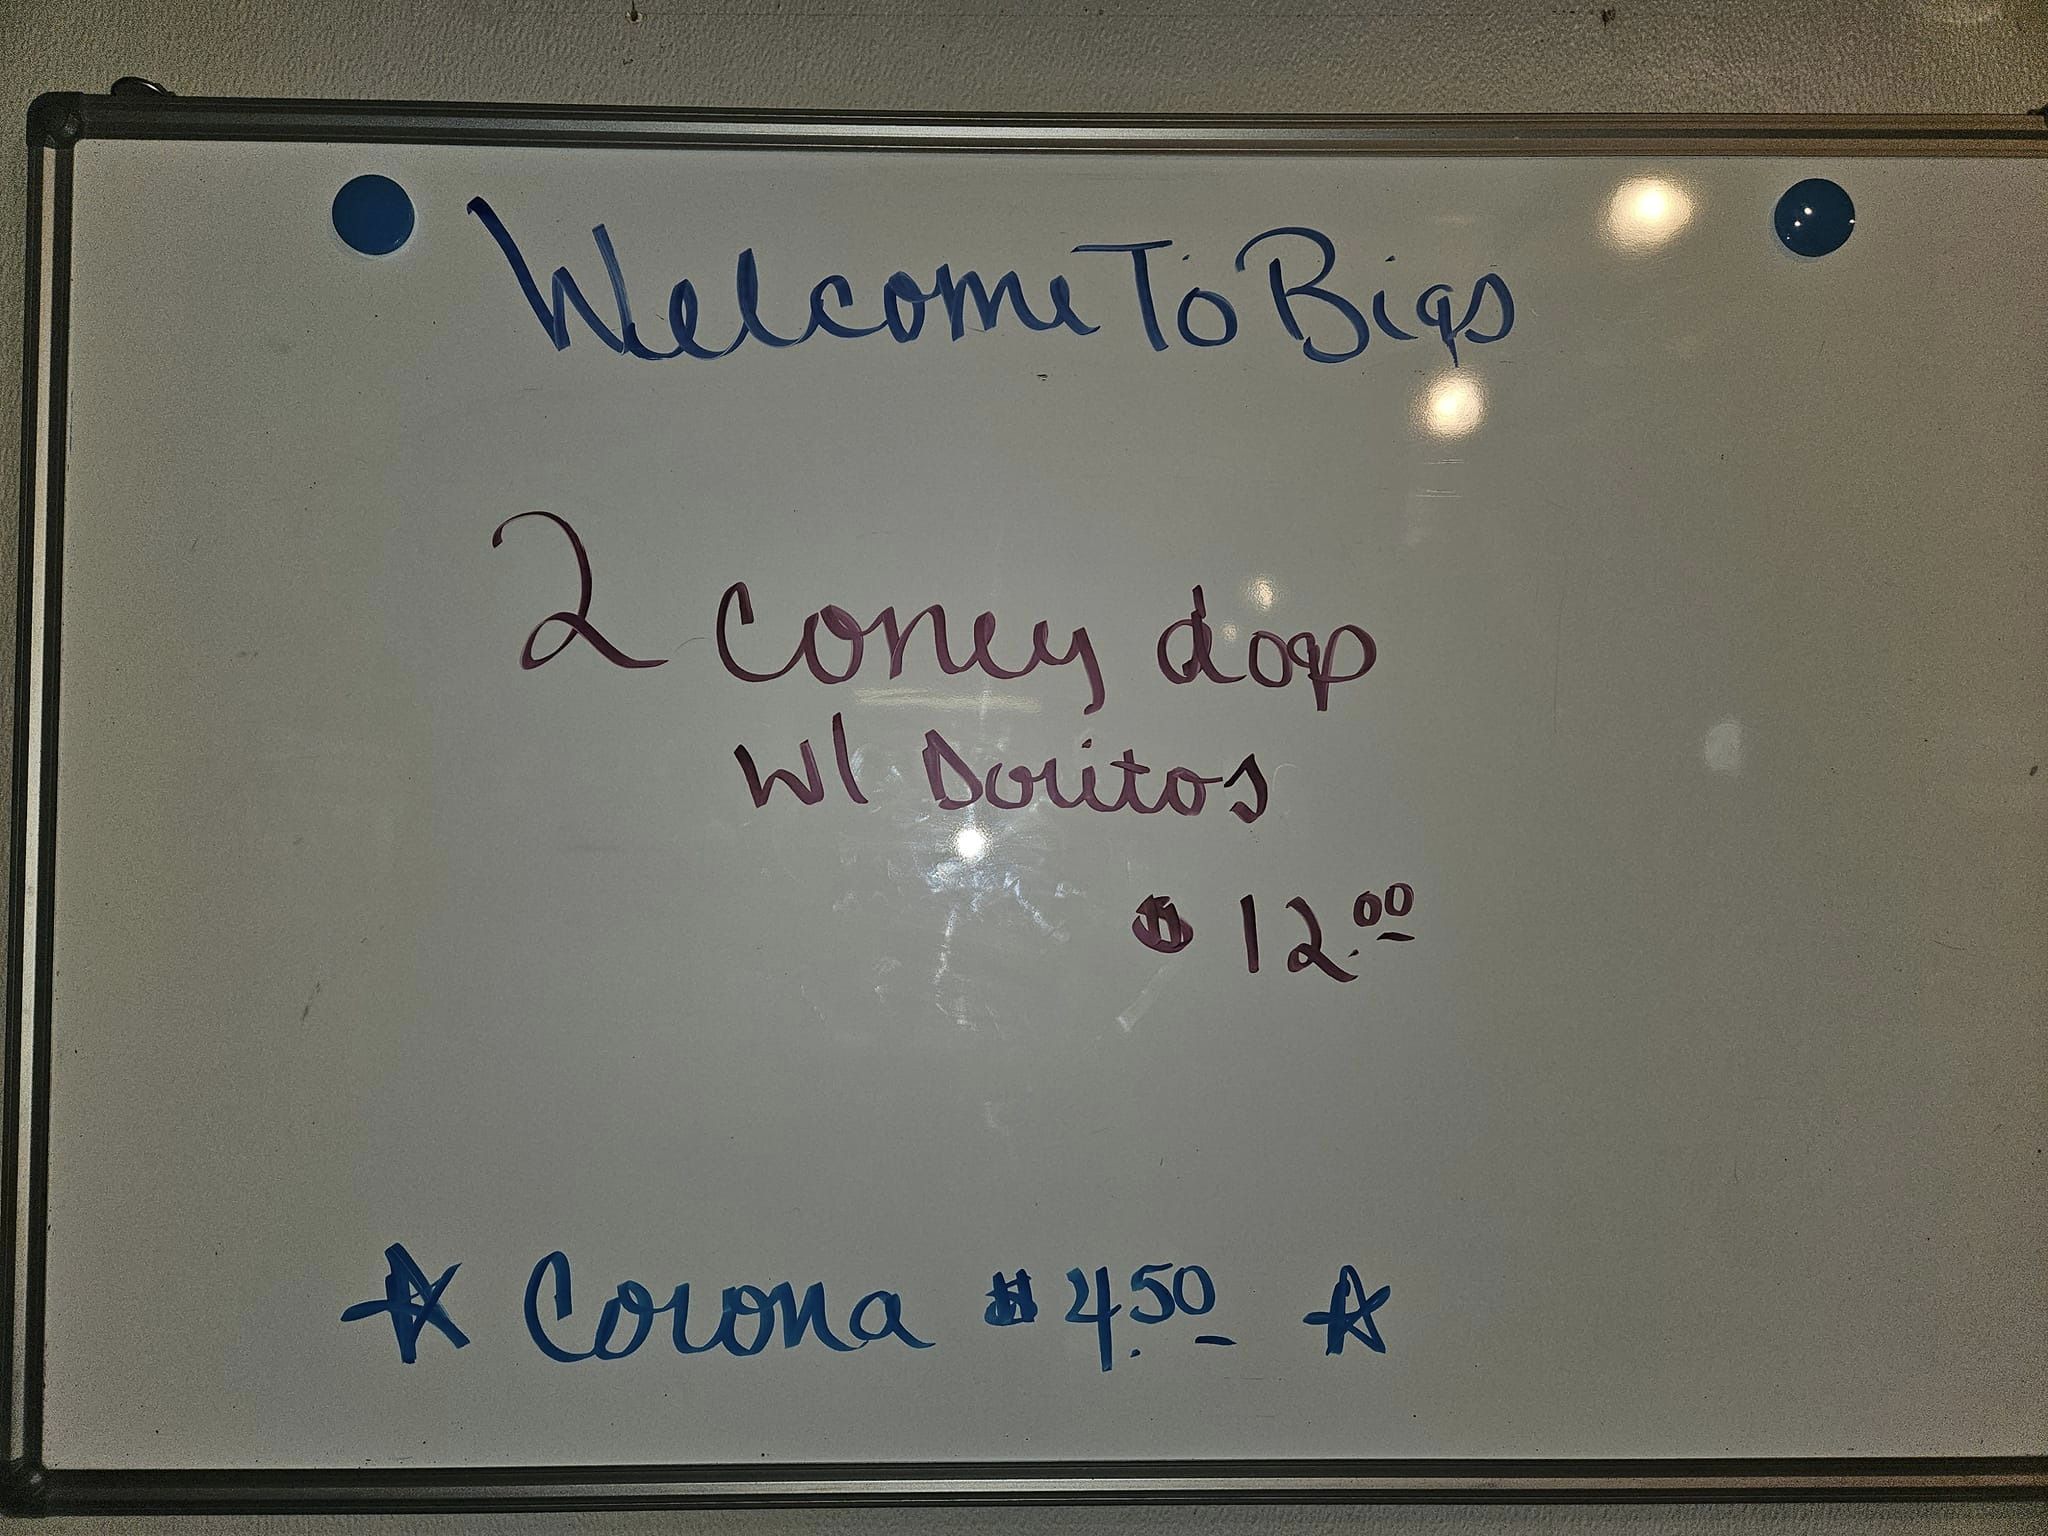 Welcome To Bigs
2 Coney dogs
W/ Doritos
$ 12.00
☆ Corona $ 4.50 ☆